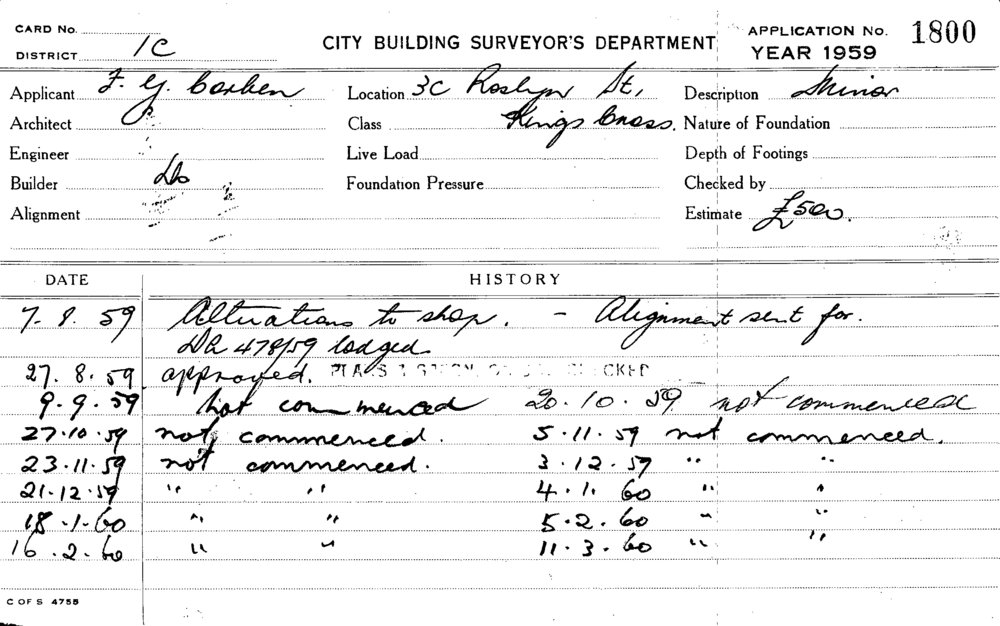 CARD No.
DISTRICT 1C
CITY BUILDING SURVEYOR'S DEPARTMENT
APPLICATION No. 1800
YEAR 1959
Applicant F. G. Corben Location 3C Roslyn St, Description Minor
Architect Class Kings Cross. Nature of Foundation
Engineer Live Load Depth of Footings
Builder Do Foundation Pressure Checked by
Alignment Estimate £500.
DATE HISTORY
7. 8. 59 Alterations to shop. - Alignment sent for.
DA 478/59 lodged
27. 8. 59 approved. PLANS
9. 9. 59 Not commenced 20. 10. 59 not commenced
27. 10. 59 not commenced. 5. 11. 59 not commenced.
23. 11. 59 not commenced. 3. 12. 59 " "
21. 12. 59 " " 4. 1. 60 " "
18. 1. 60 " " 5. 2. 60 " "
16. 2. 60 " " 11. 3. 60 " "
C OF S 4755